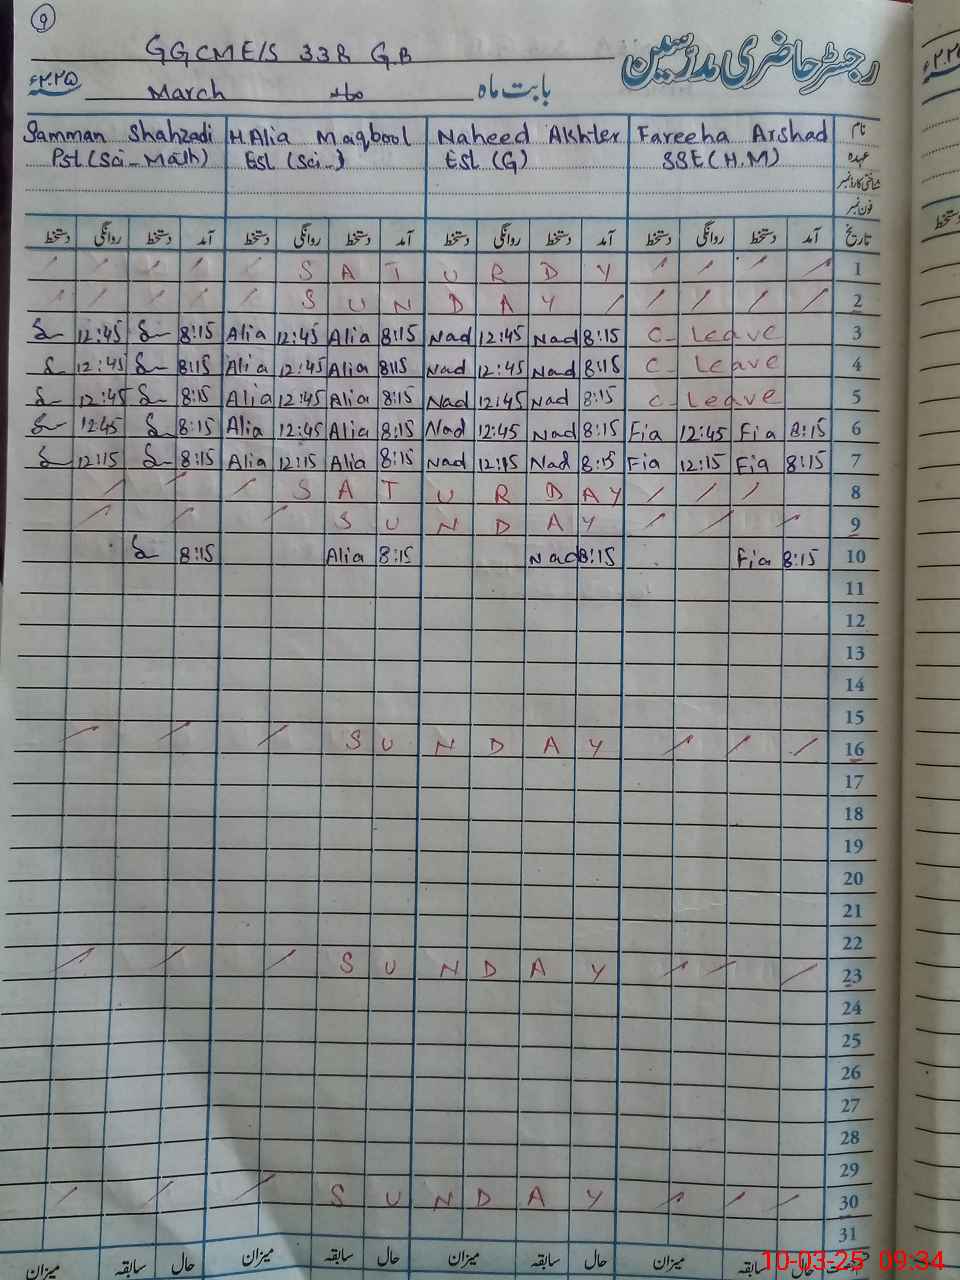 9
GGCME/S 338 G.B
رجسٹر حاضری مدرسین
بابت ماہ March ۲۰۲۵ء
Samman Shahzadi H.Alia Maqbool Naheed Akhter Fareeha Arshad نام
Pst (Sci-Math) Est (Sci-) Est (G) SSE (H.M) عہدہ
شناختی کارڈ نمبر
فون نمبر
دستخط روانگی دستخط آمد دستخط روانگی دستخط آمد دستخط روانگی دستخط آمد دستخط روانگی دستخط آمد تاریخ
SATURDY 1
SUNDAY 2
12:45 8:15 Alia 12:45 Alia 8:15 Nad 12:45 Nad 8:15 C- Leave 3
12:45 8:15 Alia 12:45 Alia 8:15 Nad 12:45 Nad 8:15 C- Leave 4
12:45 8:15 Alia 12:45 Alia 8:15 Nad 12:45 Nad 8:15 C- Leave 5
12:45 8:15 Alia 12:45 Alia 8:15 Nad 12:45 Nad 8:15 Fia 12:45 Fia 8:15 6
12:15 8:15 Alia 12:15 Alia 8:15 Nad 12:15 Nad 8:15 Fia 12:15 Fia 8:15 7
SATURDAY 8
SUNDAY 9
8:15 Alia 8:15 Nad 8:15 Fia 8:15 10
11
12
13
14
15
SUNDAY 16
17
18
19
20
21
22
SUNDAY 23
24
25
26
27
28
29
SUNDAY 30
31
میزان سابقہ حال میزان سابقہ حال میزان سابقہ حال میزان سابقہ حال
10-03-25 09:34